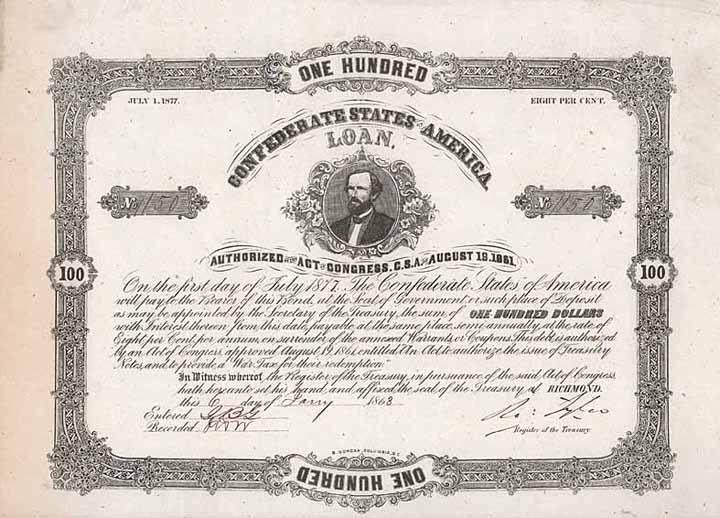 ONE HUNDRED
JULY 1, 1877.
EIGHT PER CENT.
CONFEDERATE STATES OF AMERICA.
LOAN.
No 150
No 150
AUTHORIZED BY THE ACT OF CONGRESS, C.S.A. OF AUGUST 19, 1861.
100
100
On the first day of July 1877. The Confederate States of America
will pay to the Bearer of this Bond, at the Seat of Government or such place of Deposit
as may be appointed by the Secretary of the Treasury, the sum of ONE HUNDRED DOLLARS
with Interest thereon from this date, payable at the same place, semi-annually, at the rate of
Eight per Cent. per annum, on surrender of the annexed Warrants or Coupons. This debt is authorized
by an Act of Congress, approved August 19, 1861, entitled An Act to authorize the issue of Treasury
Notes, and to provide a War Tax for their redemption.
In Witness whereof the Register of the Treasury, in pursuance of the said Act of Congress,
hath hereunto set his hand, and affixed the seal of the Treasury, at RICHMOND.
this 6 day of Jany 1863
Entered
Recorded
Ro: Tyler
Register of the Treasury.
B. DUNCAN, COLUMBIA, S.C.
ONE HUNDRED